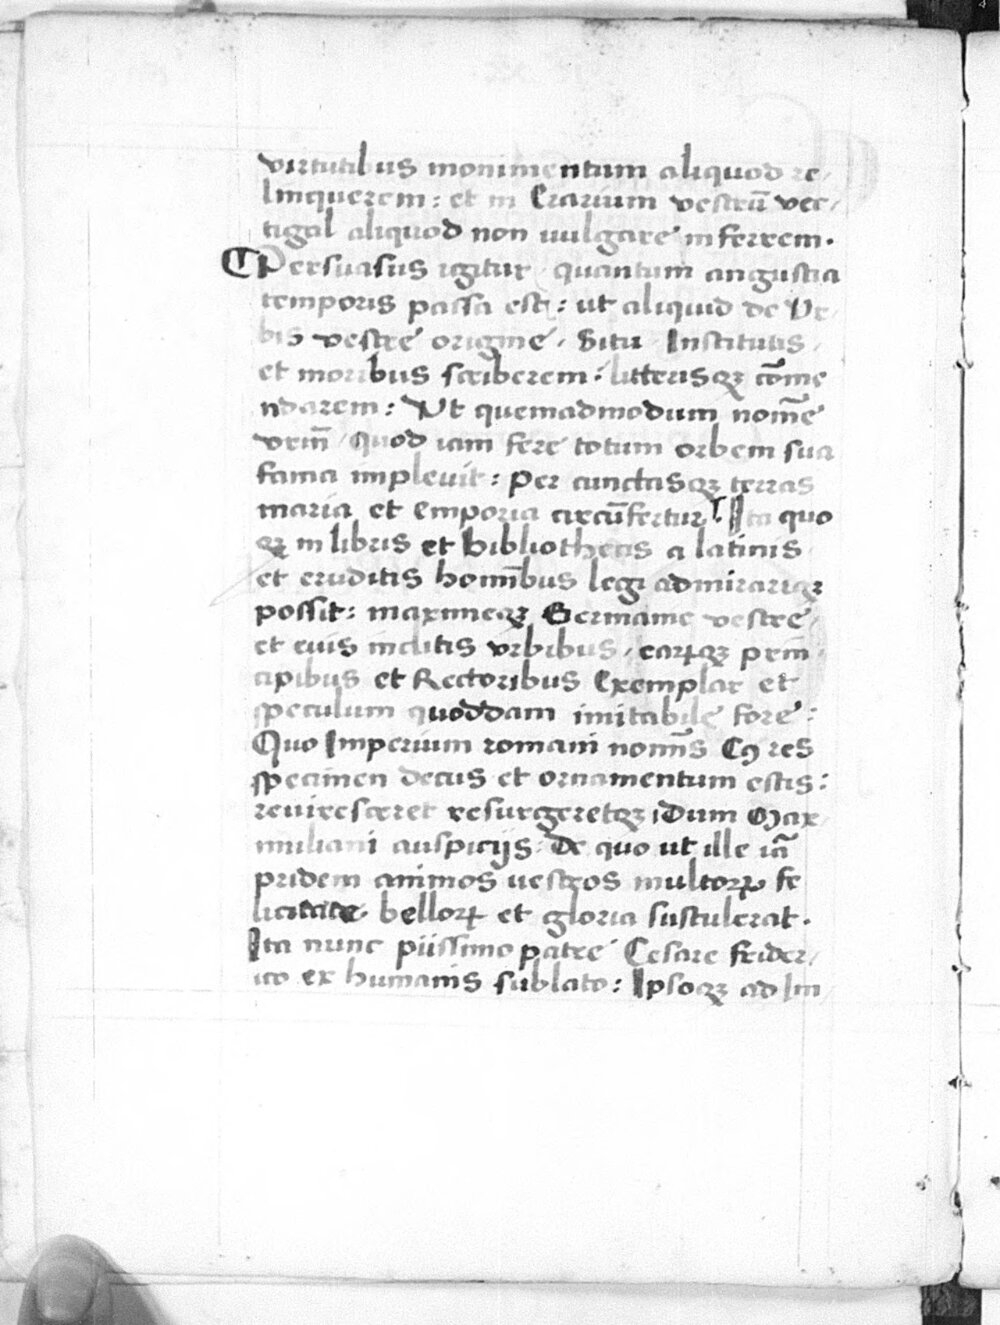 virtutibus monimentum aliquod re/
linquerem: et in Erarium vestrū vec/
tigal aliquod non uulgare inferrem.
Persuasus igitur quantum angustia
temporis passa est: ut aliquid de Vr/
bis vestre origine, Situ Institutis,
et moribus scriberem: litterisqꝫ cōme
ndarem: Vt quemadmodum nom̄e
vrm̄ quod iam fere totum orbem sua
fama impleuit: per cunctasqꝫ terras
maria et emporia circūfertur: Ita quo
qꝫ in libris et bibliothecis a latinis
et eruditis homībus legi admirariqꝫ
possit: maximeqꝫ Germanie vestre,
et eius inclitis vrbibus, earꝝqꝫ prin
cipibus et Rectoribus Exemplar et
speculum quoddam imitabile fore:
Quo Imperium romani nomīs Cꝰ res
specimen decus et ornamentum estis:
reuiresceret resurgeretqꝫ Dum Max
imiliani auspicijs. De quo ut ille iā
pridem animos uestros multorꝝ fe
licitate. bellorꝝ et gloria sustulerat.
Ita nunc piissimo patre Cesare feider/
ico ex humanis sublato: Ipsoqꝫ ad Im